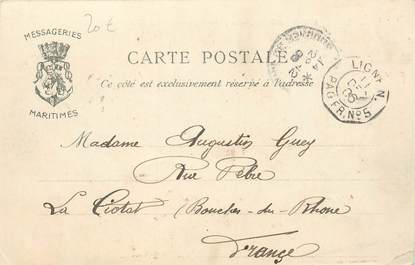 20€
MESSAGERIES
MARITIMES
CARTE POSTALE
Ce côté est exclusivement réservé à l'adresse
LIGNE N.
PAQ. FR. Nº 5
Madame Augustin Guey
Rue Pèbre
La Ciotat (Bouches-du-Rhone
France